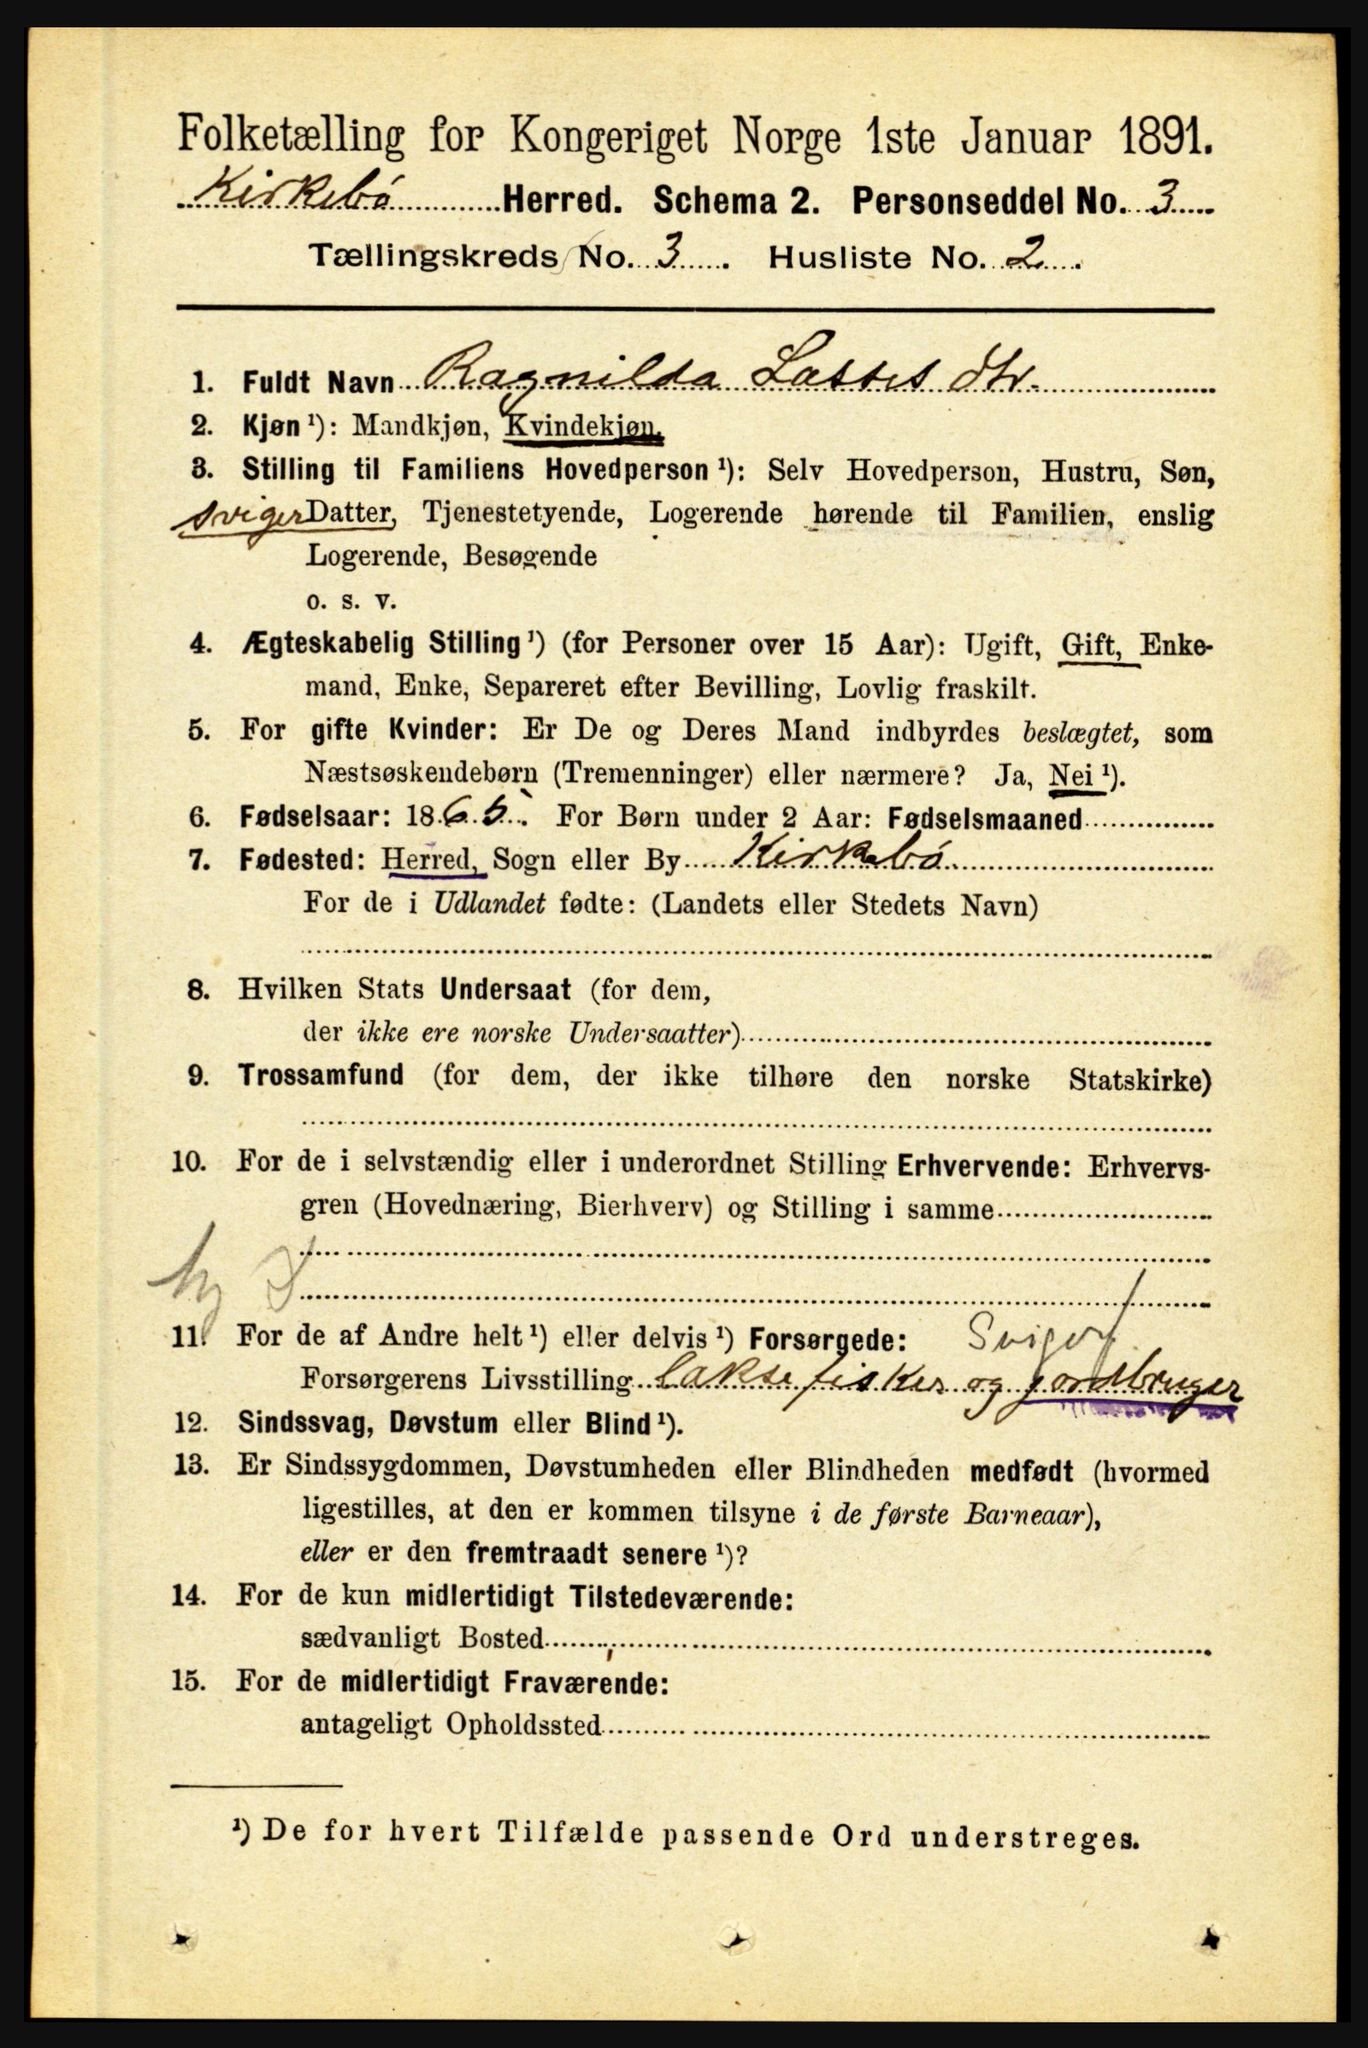 Folketælling for Kongeriget Norge 1ste Januar 1891.
Kirkebø Herred. Schema 2. Personseddel No. 3
Tællingskreds No. 3. Husliste No. 2.
1. Fuldt Navn Ragnilda Lasses dtr.
2. Kjøn ¹): Mandkjøn, Kvindekjøn.
3. Stilling til Familiens Hovedperson ¹): Selv Hovedperson, Hustru, Søn,
sviger Datter, Tjenestetyende, Logerende hørende til Familien, enslig
Logerende, Besøgende
o. s. v.
4. Ægteskabelig Stilling ¹) (for Personer over 15 Aar): Ugift, Gift, Enke-
mand, Enke, Separeret efter Bevilling, Lovlig fraskilt.
5. For gifte Kvinder: Er De og Deres Mand indbyrdes beslægtet, som
Næstsøskendebørn (Tremenninger) eller nærmere? Ja, Nei ¹).
6. Fødselsaar: 1865. For Børn under 2 Aar: Fødselsmaaned
7. Fødested: Herred, Sogn eller By Kirkebø
For de i Udlandet fødte: (Landets eller Stedets Navn)
8. Hvilken Stats Undersaat (for dem,
der ikke ere norske Undersaatter)
9. Trossamfund (for dem, der ikke tilhøre den norske Statskirke)
10. For de i selvstændig eller i underordnet Stilling Erhvervende: Erhvervs-
gren (Hovednæring, Bierhverv) og Stilling i samme
11. For de af Andre helt ¹) eller delvis ¹) Forsørgede: Svigerf
Forsørgerens Livsstilling laksefisker og jordbruger
12. Sindssvag, Døvstum eller Blind ¹).
13. Er Sindssygdommen, Døvstumheden eller Blindheden medfødt (hvormed
ligestilles, at den er kommen tilsyne i de første Barneaar),
eller er den fremtraadt senere ¹)?
14. For de kun midlertidigt Tilstedeværende:
sædvanligt Bosted
15. For de midlertidigt Fraværende:
antageligt Opholdssted
¹) De for hvert Tilfælde passende Ord understreges.